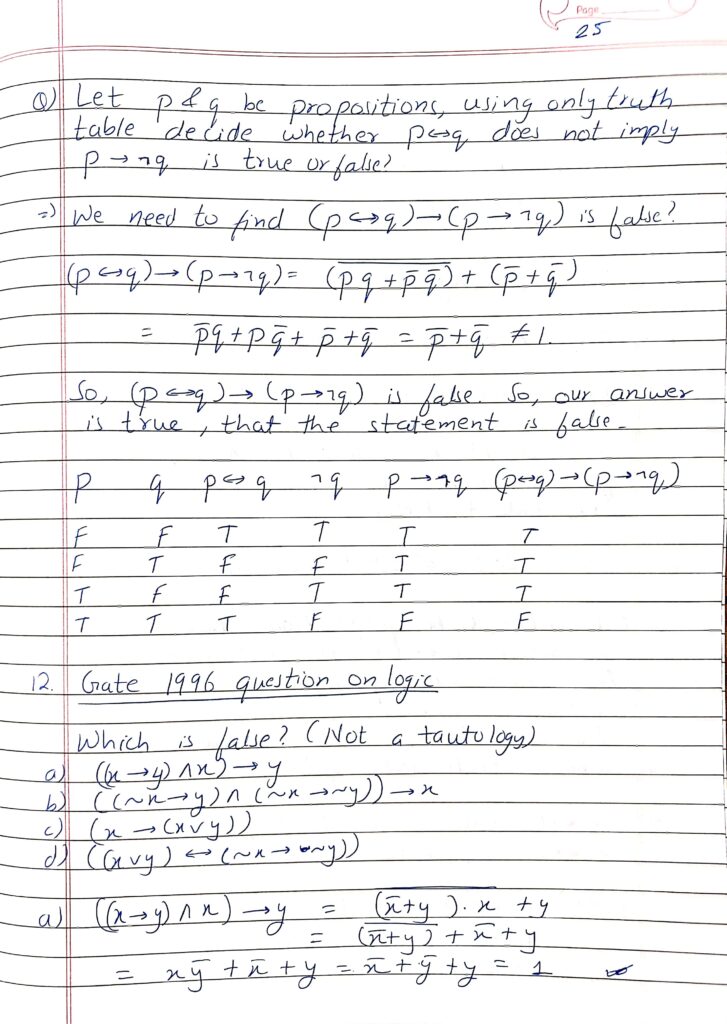 Page
25
Q) Let p & q be propositions, using only truth
table decide whether p↔q does not imply
p → ¬q is true or false?
⇒) We need to find (p ↔ q) → (p → ¬q) is false?
(p ↔ q) → (p → ¬q) = (p̅q̅ ̅+̅ ̅p̅̅q̅̅) + (p̅ + q̅)
= p̅q + pq̅ + p̅ + q̅ = p̅ + q̅ ≠ 1.
So, (p ↔ q) → (p → ¬q) is false. So, our answer
is true, that the statement is false.
p q p ↔ q ¬q p → ¬q (p↔q) → (p → ¬q)
F F T T T T
F T F F T T
T F F T T T
T T T F F F
12. Gate 1996 question on logic
Which is false? (Not a tautology)
a) ((x → y) ∧ x) → y
b) ((~x → y) ∧ (~x → ~y)) → x
c) (x → (x ∨ y))
d) ((x ∨ y) ↔ (~x → ~y))
a) ((x → y) ∧ x) → y = (̅x̅̅ ̅+̅y̅ ̅)̅.̅ ̅x̅ + y
= (̅x̅̅+̅y̅)̅ + x̅ + y
= xy̅ + x̅ + y = x̅ + y̅ + y = 1